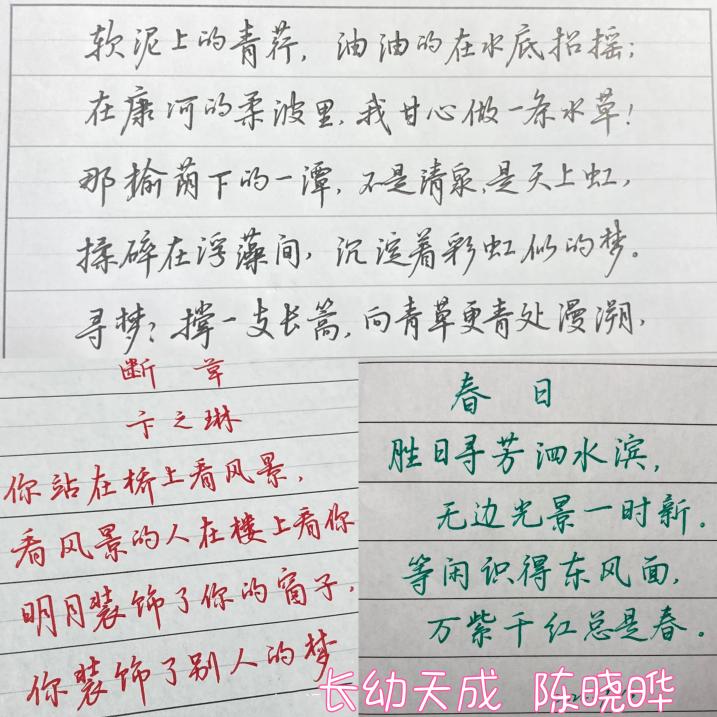 软泥上的青荇，油油的在水底招摇；
在康河的柔波里，我甘心做一条水草！
那榆荫下的一潭，不是清泉，是天上虹，
揉碎在浮藻间，沉淀着彩虹似的梦。
寻梦？撑一支长篙，向青草更青处漫溯，
断章
卞之琳
你站在桥上看风景，
看风景的人在楼上看你
明月装饰了你的窗子，
你装饰了别人的梦
春日
胜日寻芳泗水滨，
无边光景一时新。
等闲识得东风面，
万紫千红总是春。
长幼天成 陈晓晔